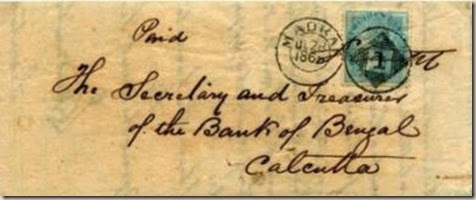 Paid
MADRAS
1
The Secretary and Treasurer
of the Bank of Bengal
Calcutta